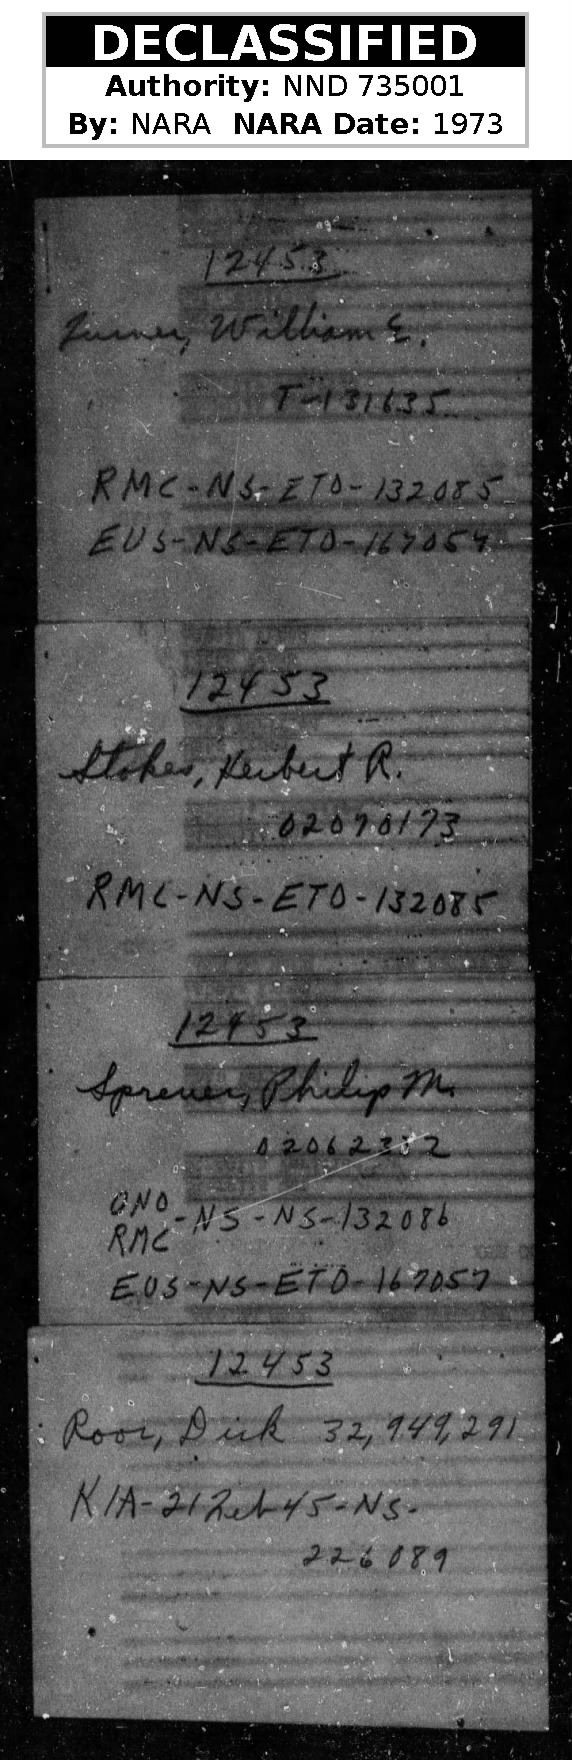 DECLASSIFIED
Authority: NND 735001
By: NARA NARA Date: 1973
12453
Turner, William E.
T-131635
RMC-NS-ETO-132085
EUS-NS-ETO-167057
12453
Stokes, Herbert R.
02070173
RMC-NS-ETO-132085
12453
Philip M.
GNO
RMC -NS-NS-132086
EUS-NS-ETO-167057
12453
Roor, Dirk 32,949,291
KIA-21Feb45-NS-
226089